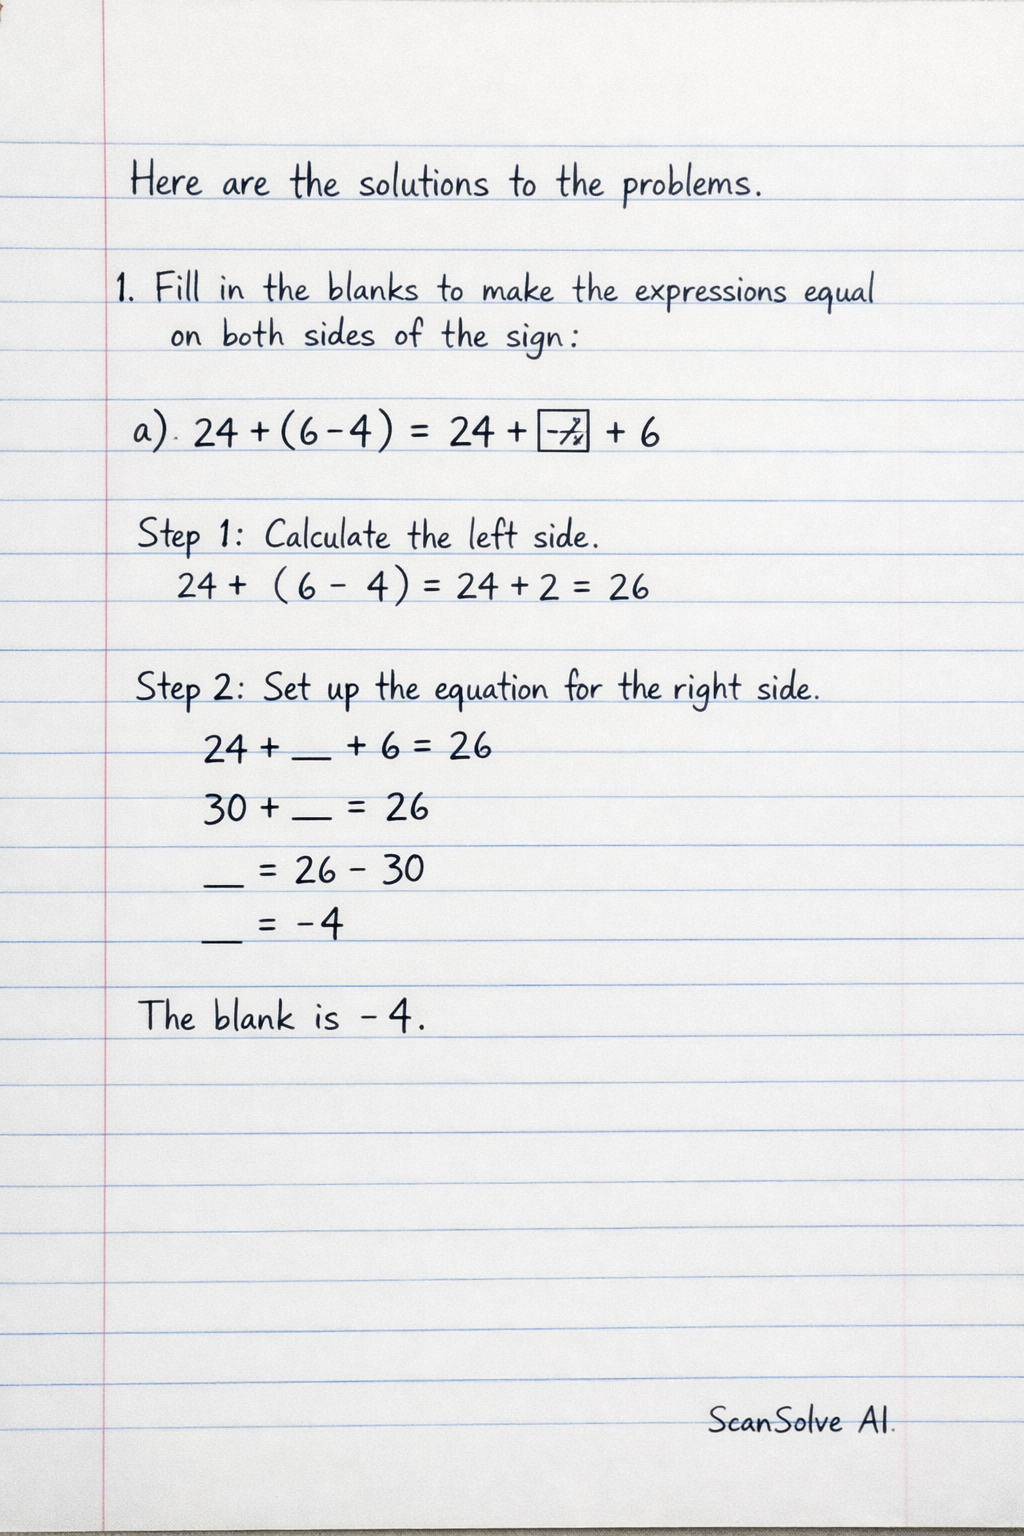 Here are the solutions to the problems.
1. Fill in the blanks to make the expressions equal
on both sides of the sign:
a). 24 + (6 - 4) = 24 + + 6
Step 1: Calculate the left side.
24 + (6 - 4) = 24 + 2 = 26
Step 2: Set up the equation for the right side.
24 + __ + 6 = 26
30 + __ = 26
__ = 26 - 30
__ = -4
The blank is -4.
ScanSolve AI.